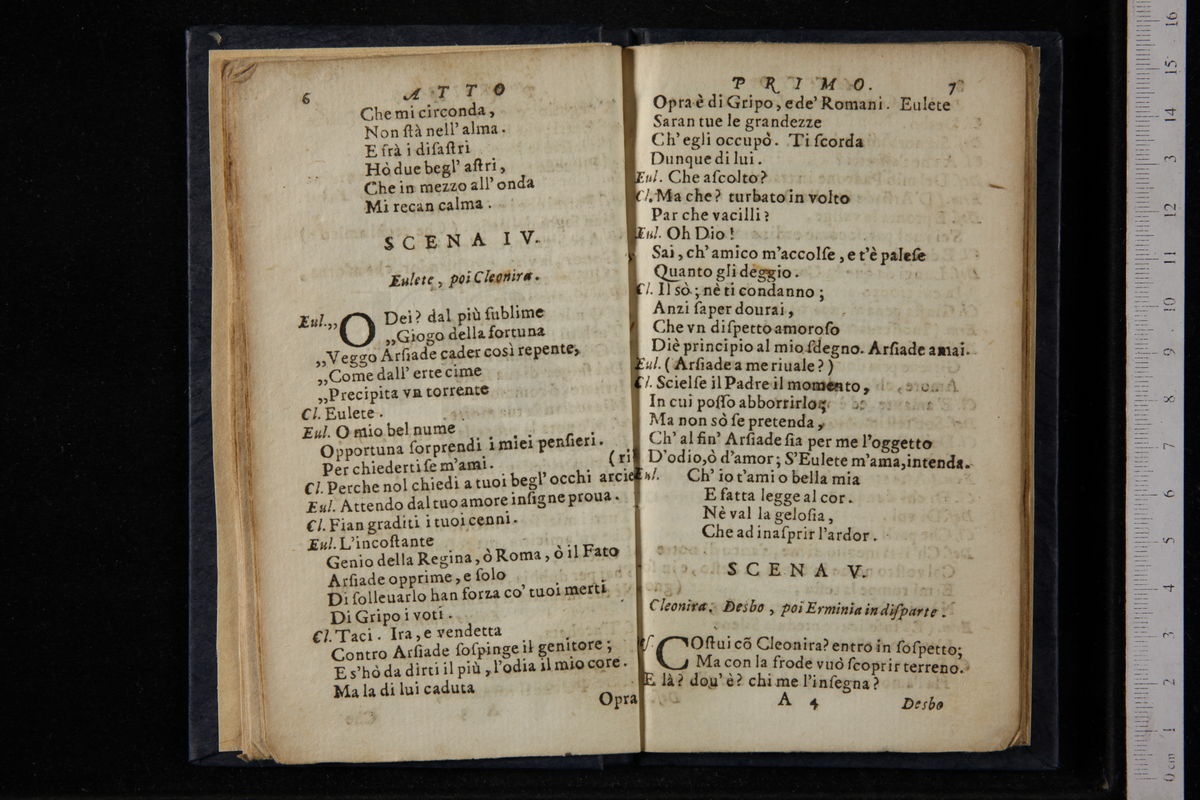 6 ATTO
Che mi circonda,
Non ſtà nell' alma.
E frà i diſaſtri
Hò due begl' aſtri,
Che in mezzo all' onda
Mi recan calma.
SCENA IV.
Eulete, poi Cleonira.
Eul. „O Dei? dal più ſublime
„Giogo della fortuna
„Veggo Arſiade cader così repente,
„Come dall' erte cime
„Precipita vn torrente
Cl. Eulete.
Eul. O mio bel nume
Opportuna ſorprendi i miei penſieri.
Per chiederti ſe m'ami. (ri?
Cl. Perche nol chiedi a tuoi begl' occhi arcie
Eul. Attendo dal tuo amore inſigne proua.
Cl. Fian graditi i tuoi cenni.
Eul. L'incoſtante
Genio della Regina, ò Roma, ò il Fato
Arſiade opprime, e ſolo
Di ſolleuarlo han forza co' tuoi merti
Di Gripo i voti.
Cl. Taci. Ira, e vendetta
Contro Arſiade ſoſpinge il genitore;
E s'hò da dirti il più, l'odia il mio core.
Ma la di lui caduta
Opra
PRIMO. 7
Opra è di Gripo, e de' Romani. Eulete
Saran tue le grandezze
Ch' egli occupò. Ti ſcorda
Dunque di lui.
Eul. Che aſcolto?
Cl. Ma che? turbato in volto
Par che vacilli?
Eul. Oh Dio!
Sai, ch' amico m'accolſe, e t'è paleſe
Quanto gli deggio.
Cl. Il sò; nè ti condanno;
Anzi ſaper dourai,
Che vn diſpetto amoroſo
Diè principio al mio ſdegno. Arſiade amai.
Eul. (Arſiade a me riuale?)
Cl. Scielſe il Padre il momento,
In cui poſſo abborrirlo;
Ma non sò ſe pretenda,
Ch' al fin' Arſiade ſia per me l'oggetto
D'odio, ò d'amor; S'Eulete m'ama, intenda.
Eul. Ch' io t'ami o bella mia
E fatta legge al cor.
Nè val la geloſia,
Che ad inaſprir l'ardor.
SCENA V.
Cleonira. Desbo, poi Erminia in diſparte.
eſ. COſtui cõ Cleonira? entro in ſoſpetto;
Ma con la frode vuó ſcoprir terreno.
E là? dou' è? chi me l'inſegna?
A 4 Desbo
0 cm 1 2 3 4 5 6 7 8 9 10 11 12 13 14 15 16